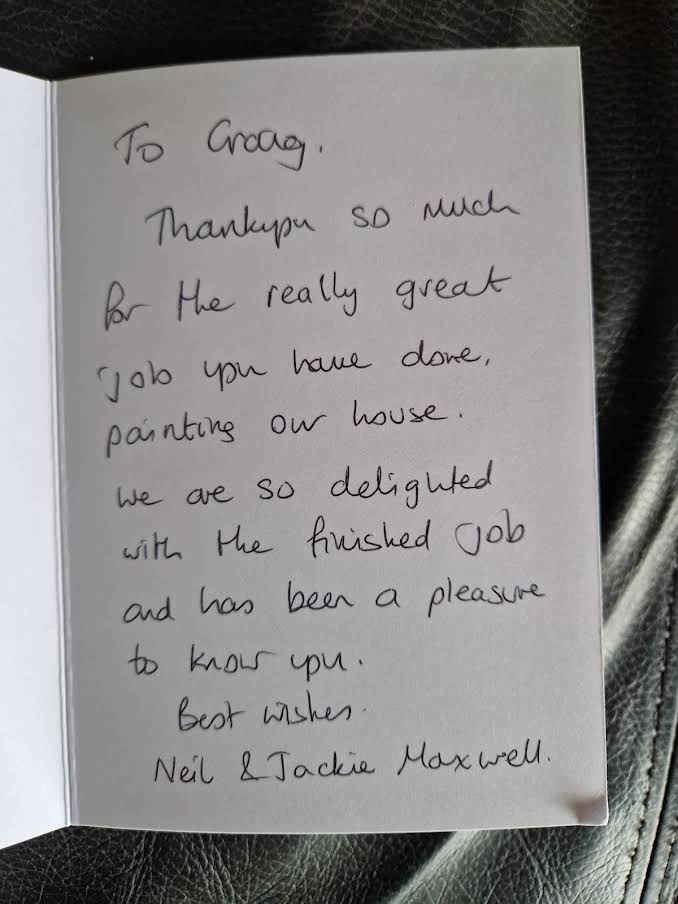 To Craig.
Thankyou so much
for the really great
job you have done,
painting our house.
we are so delighted
with the finished job
and has been a pleasure
to know you.
Best wishes.
Neil & Jackie Maxwell.